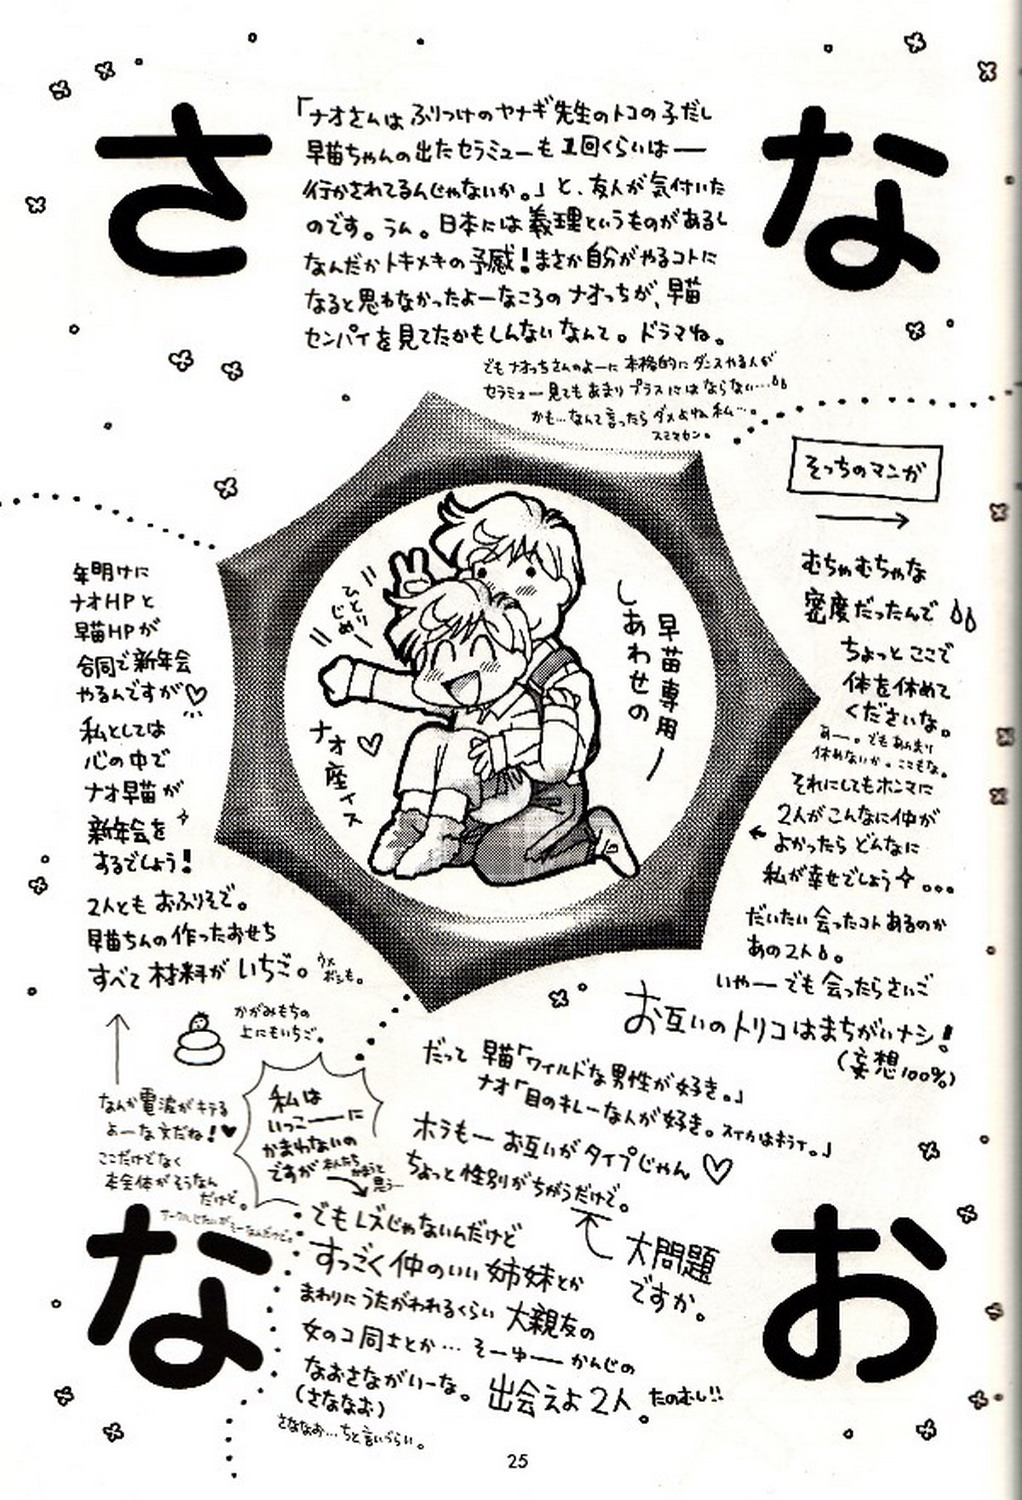 さ
な
な
お
「ナオさんは ふりつけのヤナギ先生のトコの子だし
早苗ちゃんの出たセラミューも1回くらいは——
行かされてるんじゃないか。」と、友人が気付いた
のです。うん。日本には義理というものがあるし
なんだかトキメキの予感!まさか自分がやるコトに
なると思わなかったよーなころの ナオっちが、早苗
センパイを見てたかもしんないなんて。ドラマね。
でもナオっちさんのよーに 本格的にダンスやる人が
セラミュー見てもあまりプラスにはならない…
かも…なんて言ったらダメよね 私…。
スミマセン。
そっちのマンガ
→
むちゃむちゃな
密度だったんで
ちょっとここで
体を休めて
くださいな。
あー。でもあんまり
休めないか。ここもな。
それにしてもホンマに
2人がこんなに仲が
よかったら どんなに
私が幸せでしょう…
だいたい会ったコトあるのか
あの2人。
いやーでも会ったらさいご
お互いのトリコはまちがいナシ!
(妄想100%)
ひとり
じめ
早苗専用
しあわせの
ナオ座イス
年明けに
ナオHPと
早苗HPが
合同で新年会
やるんですが♡
私としては
心の中で
ナオ早苗が
新年会を
するでしょう!
2人ともおふりそで。
早苗ちんの作ったおせち
すべて材料がいちご。
ウメ
ボシも。
かがみもちの
上にもいちご。
なんか電波がキテる
よーな文だね!♥
ここだけでなく
本全体がそうなん
だけど。
私は
いっこーーに
かまわないの
ですが
本人たち
かまうと
思う…
だって 早苗「ワイルドな男性が好き。」
ナオ「目のキレーな人が好き。スイカはキライ。」
ホラもー お互いがタイプじゃん♡
ちょっと性別がちがうだけで。
大問題
ですか。
でもレズじゃないんだけど
すっごく仲のいい姉妹とか
まわりにうたがわれるくらい 大親友の
女のコ同士とか… そーゆーーかんじの
なおさながいーな。出会えよ2人。たのむし!!
(さななお)
さななお…ちと言いづらい。
25